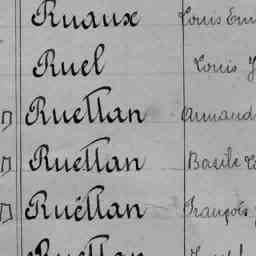 Ruaux Louis
Ruel Louis
Ruellan Armand
Ruellan Basile
Ruéllan François
Ruellan